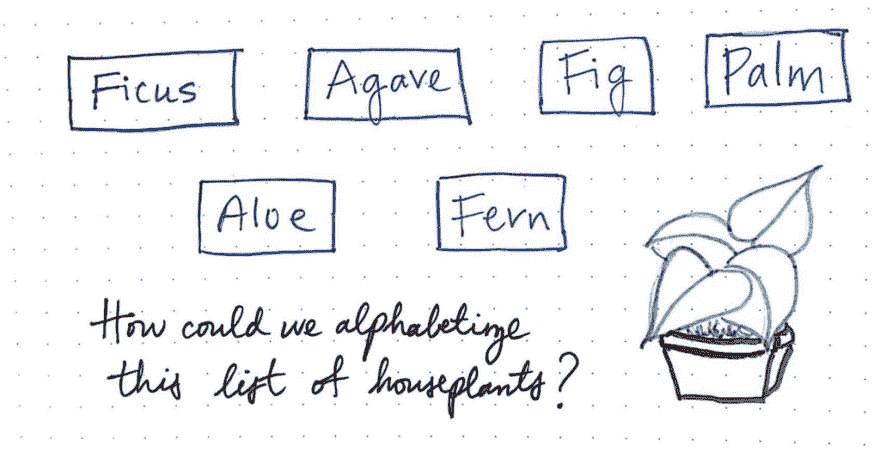 Ficus Agave Fig Palm
Aloe Fern
How could we alphabetize
this list of houseplants?